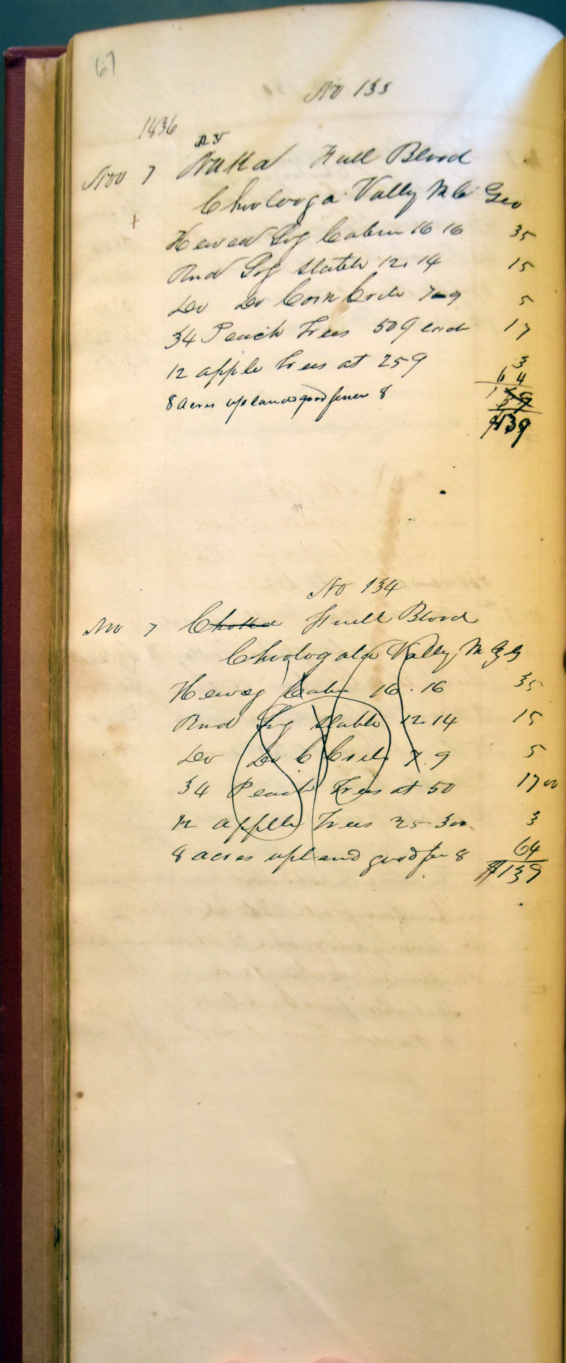 67
No 133
1836
Nov 7 Full Blood
Valley Geo
Hewed Log Cabin 16 16 35
Rnd Log Stable 12.14 15
Do Do Corn Crib 7-9 5
34 Peach Trees 50 each 17
12 apple trees at 25 3
8 acres upland good fence 8 64
139
No 134
Nov 7 Full Blood
Valley
Hewed Cabin 16.16 35
Rnd Log Stable 12.14 15
Do Do C Crib 7.9 5
34 Peach Trees at 50 17 00
12 apple Trees 25 3 00 3
8 acres upland good fen 8 64
$139